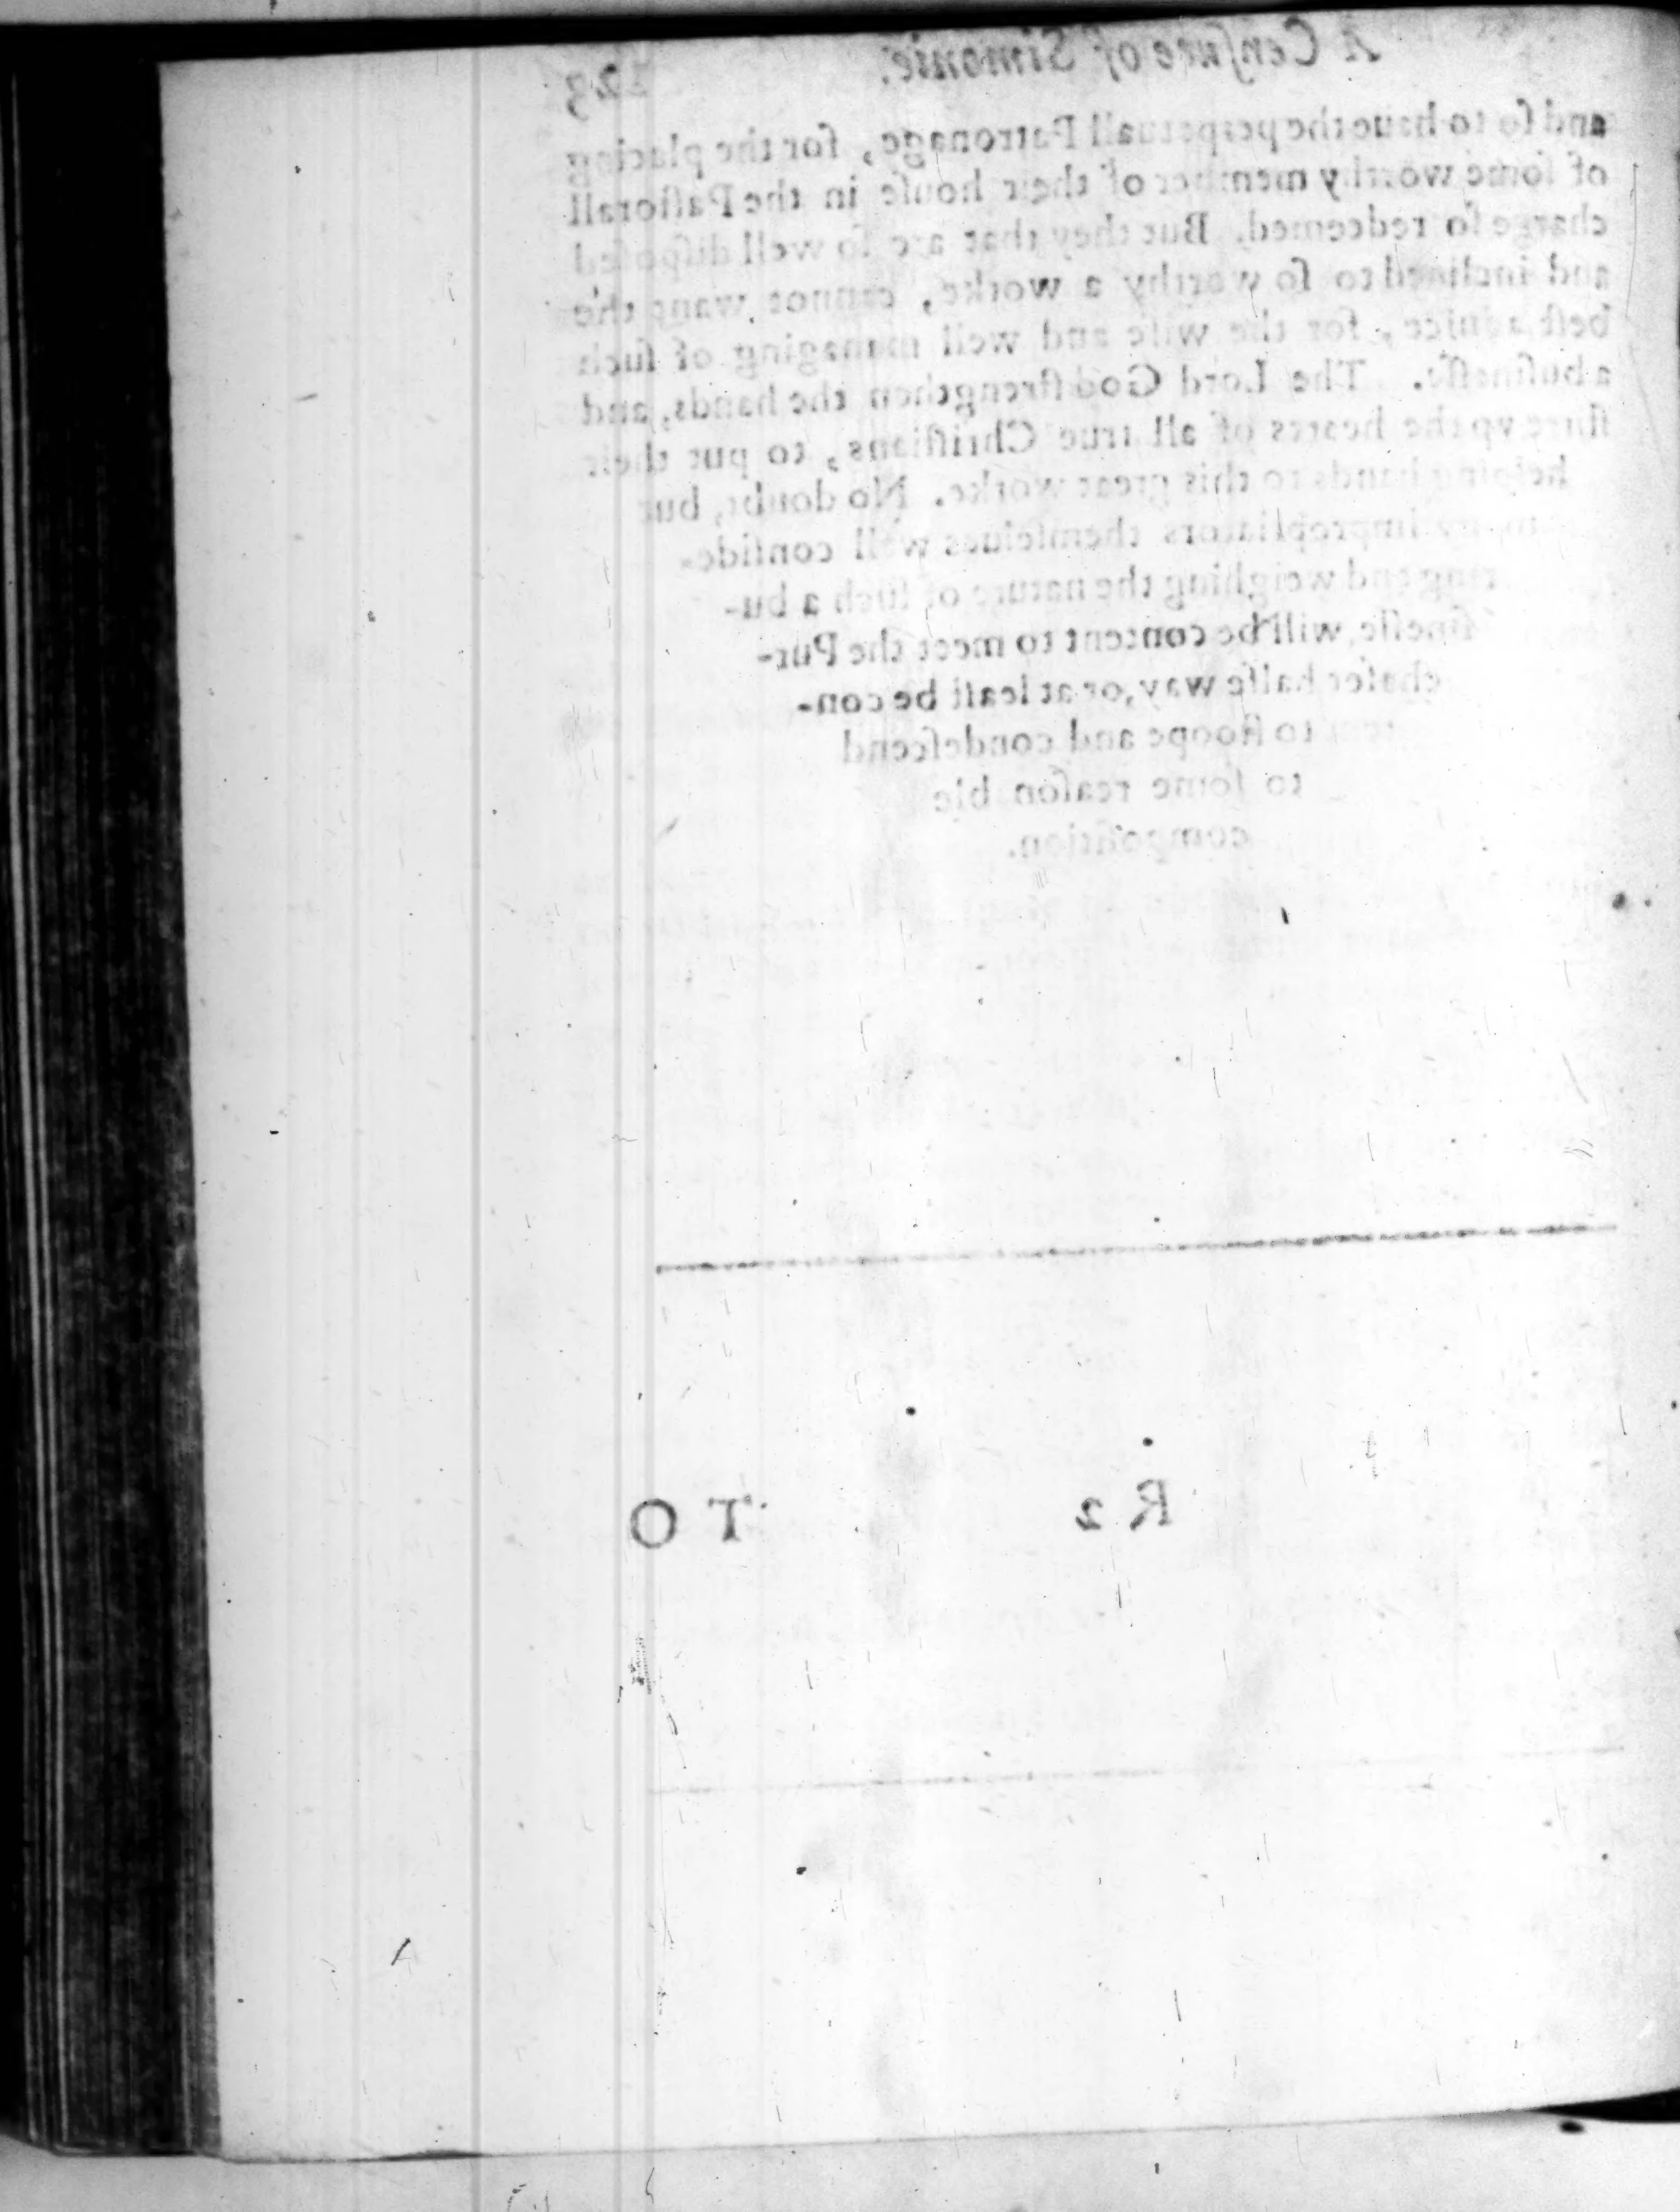 A Cenſure of Simonie. 123
and ſo to haue the perpetuall Patronage, for the placing
of ſome worthy member of their houſe in the Paſtorall
charge ſo redeemed. But they that are ſo well diſpoſed
and inclined to ſo worthy a worke, cannot want the
beſt aduice, for the wiſe and well managing of ſuch
a buſineſſe. The Lord God ſtrengthen the hands, and
ſtirre vp the heartes of all true Chriſtians, to put their
helping hands to this great worke. No doubt, but
many impropriators themſelues well conſide-
ring and weighing the nature of ſuch a bu-
ſineſſe, will be content to meet the Pur-
chaſer halfe way, or at leaſt be con-
tent to ſtoope and condeſcend
to ſome reaſon ble
compoſition.
R 2 TO